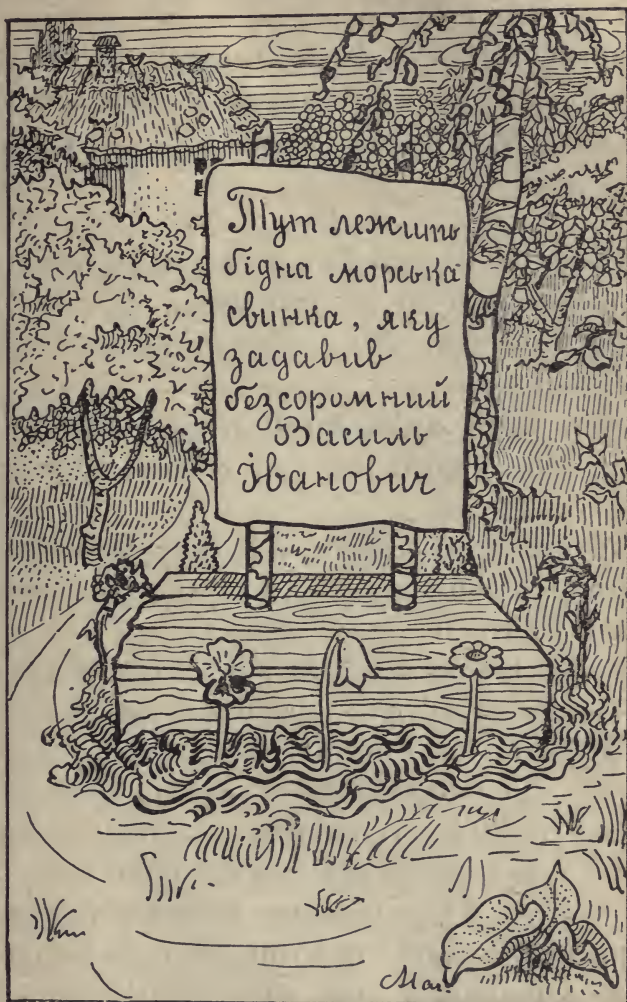 Тут лежить
бідна морська
свинка, яку
задавив
безсоромний
Василь
Іванович